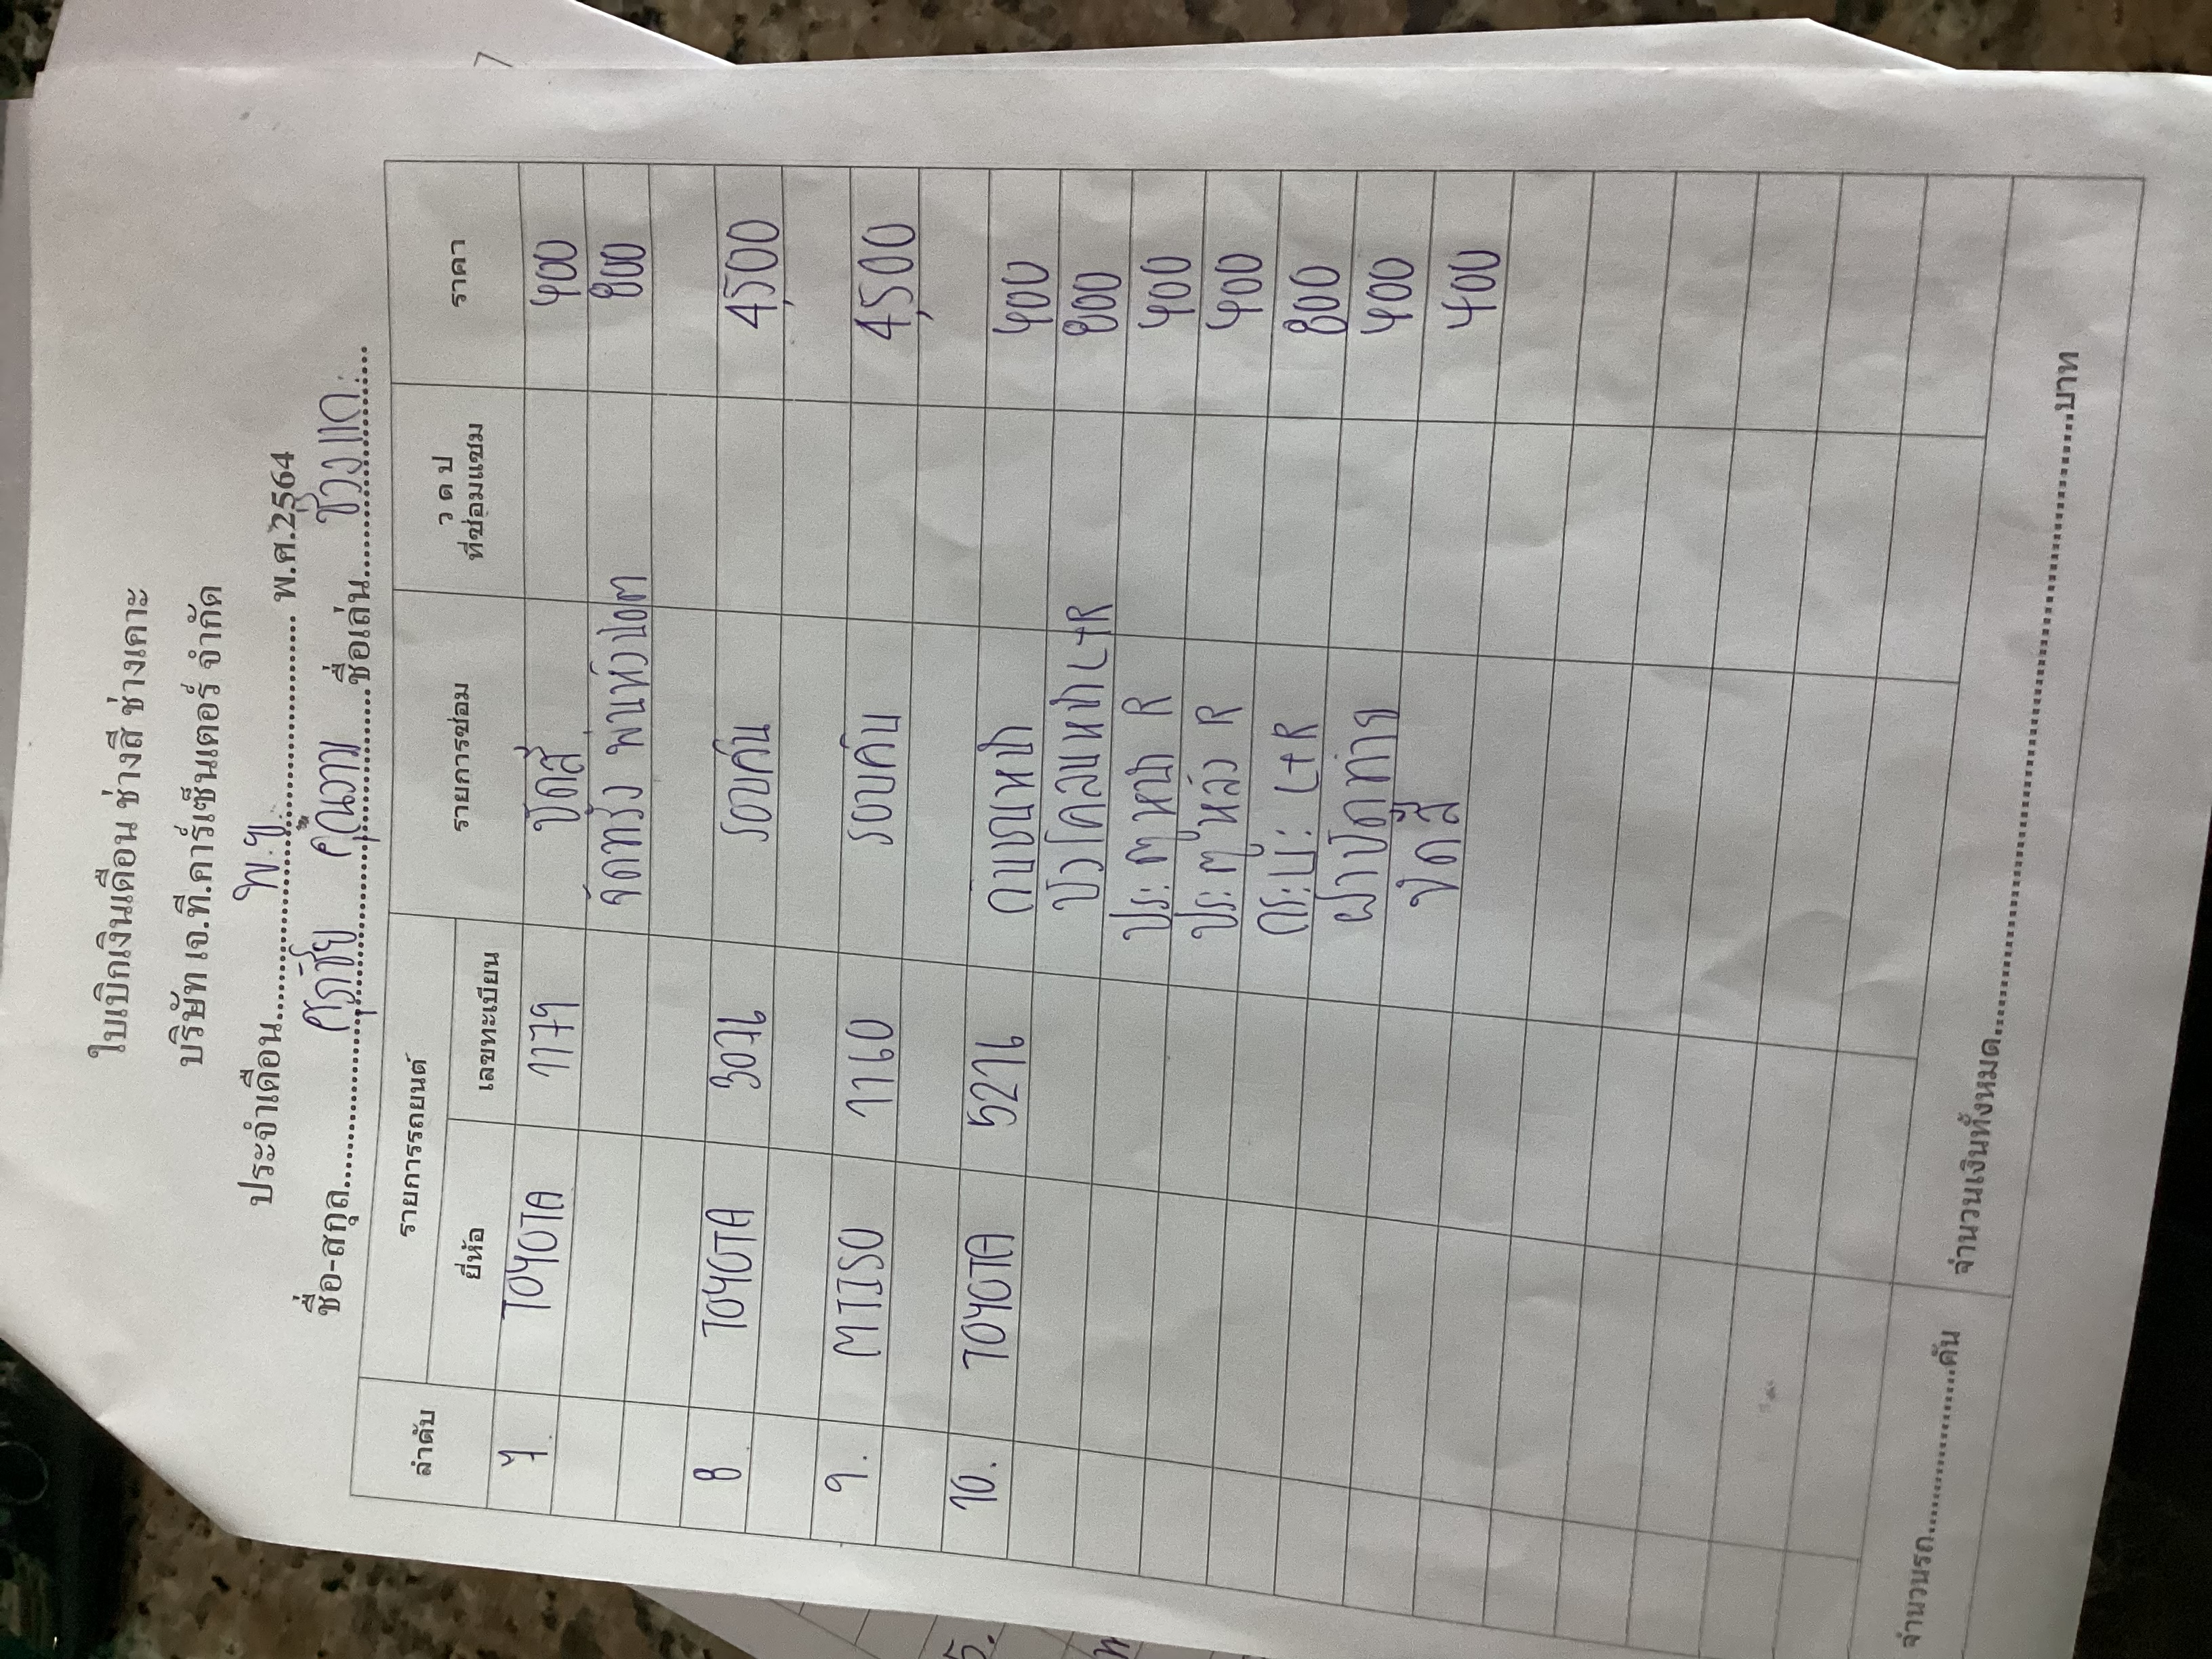 ใบเบิกเงินเดือน ช่างสี ช่างเคาะ
บริษัท เจ.ที.คาร์เซ็นเตอร์ จำกัด
ประจำเดือน..........พ.ย.......... พ.ศ.2564
ชื่อ-สกุล.......... ..........ชื่อเล่น..........
ลำดับ รายการรถยนต์ รายการซ่อม ว ด ป ที่ซ่อมแซม ราคา
ยี่ห้อ เลขทะเบียน
7. TOYOTA 1179 ขัดสี 400
จัดทรง 800
8. TOYOTA 3076 รอบคัน 4,500
9. MTISO 1160 รอบคัน 4,500
10. TOYOTA 5276 กันชนหน้า 400
บังโคลนหน้า L+R 800
ประตูหน้า R 400
ประตูหลัง R 400
กระบะ L+R 800
ฝาปิดท้าย 400
ขัดสี 400
จำนวนรถ....................คัน จำนวนเงินทั้งหมด....................บาท
5.